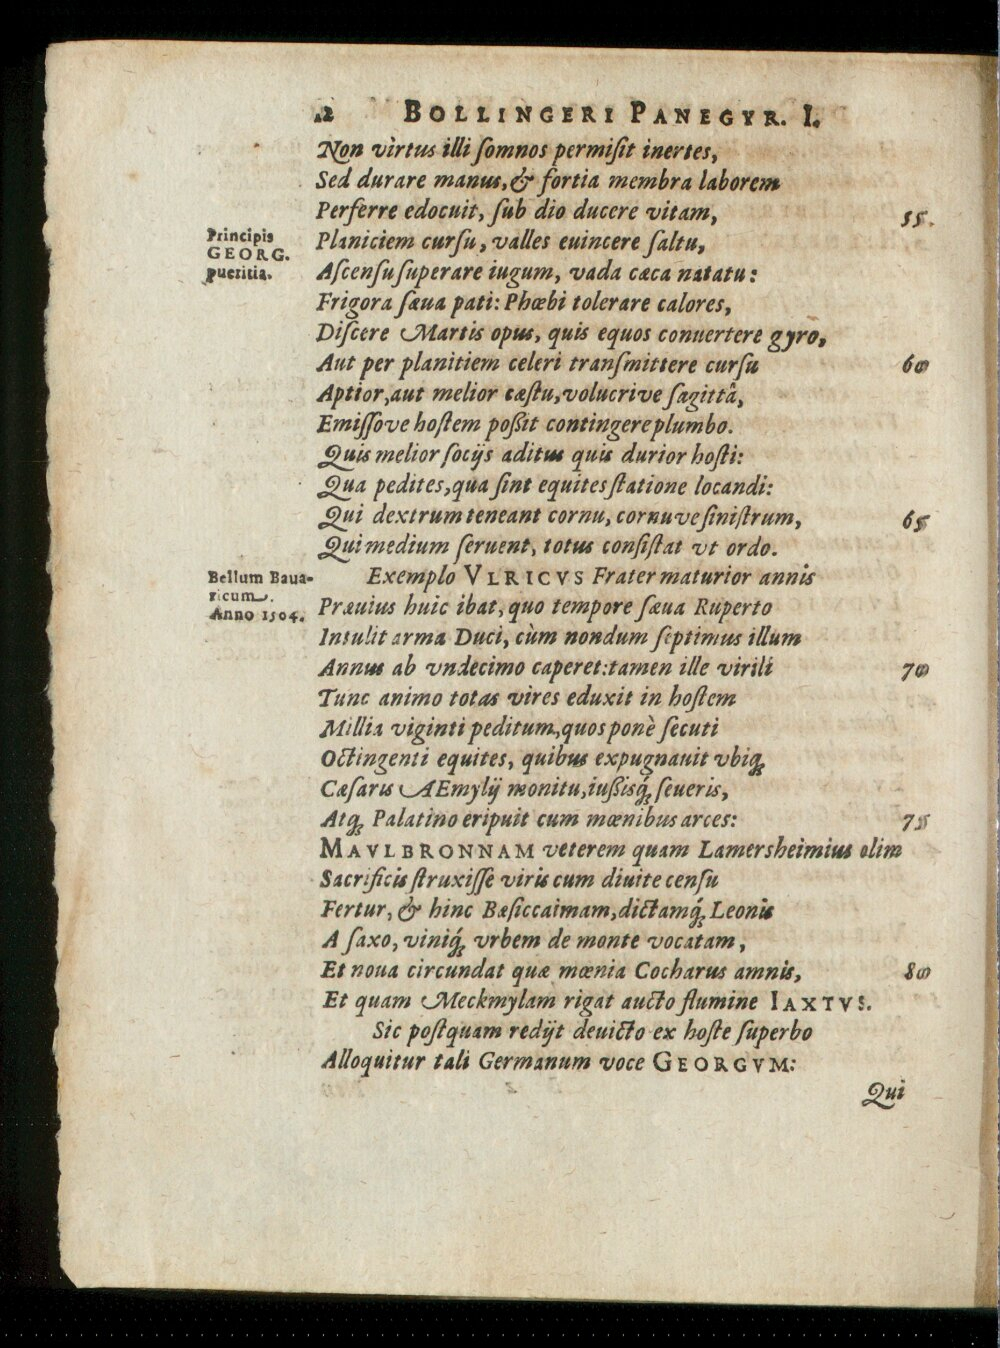 2 BOLLINGERI PANEGYR. I.
Non virtus illi ſomnos permiſit inertes,
Sed durare manus, & fortia membra laborem
Perferre edocuit, ſub dio ducere vitam, 55.
Principis
GEORG.
pueritia.
Planiciem curſu, valles euincere ſaltu,
Aſcenſu ſuperare iugum, vada cæca natatu:
Frigora ſæua pati: Phœbi tolerare calores,
Diſcere Martis opus, quis equos conuertere gyro,
Aut per planitiem celeri tranſmittere curſu 60
Aptior, aut melior cæstu, volucrive ſagittâ,
Emiſſove hoſtem poßit contingere plumbo.
Quis melior ſocijs aditus quis durior hoſti:
Qua pedites, qua ſint equites ſtatione locandi:
Qui dextrum teneant cornu, cornuve ſiniſtrum, 65
Qui medium ſeruent, totus conſiſtat vt ordo.
Bellum Baua-
ricum.
Anno 1504.
Exemplo VLRICVS Frater maturior annis
Præuius huic ibat, quo tempore ſæua Ruperto
Intulit arma Duci, cùm nondum ſeptimus illum
Annus ab vndecimo caperet: tamen ille virili 70
Tunc animo totas vires eduxit in hoſtem
Millia viginti peditum, quos ponè ſecuti
Octingenti equites, quibus expugnauit vbiq́;
Cæſaris AEmylij monitu, iußisq́; ſeueris,
Atq; Palatino eripuit cum mœnibus arces: 75
MAVLBRONNAM veterem quam Lamersheimius olim
Sacrificis ſtruxiſſe viris cum diuite cenſu
Fertur, & hinc Bæſiccaimam, dictamq́; Leonis
A ſaxo, viniq́; vrbem de monte vocatam,
Et noua circundat quæ mœnia Cocharus amnis, 80
Et quam Meckmylam rigat aucto flumine IAXTVS.
Sic poſtquam redijt deuicto ex hoſte ſuperbo
Alloquitur tali Germanum voce GEORGVM:
Qui